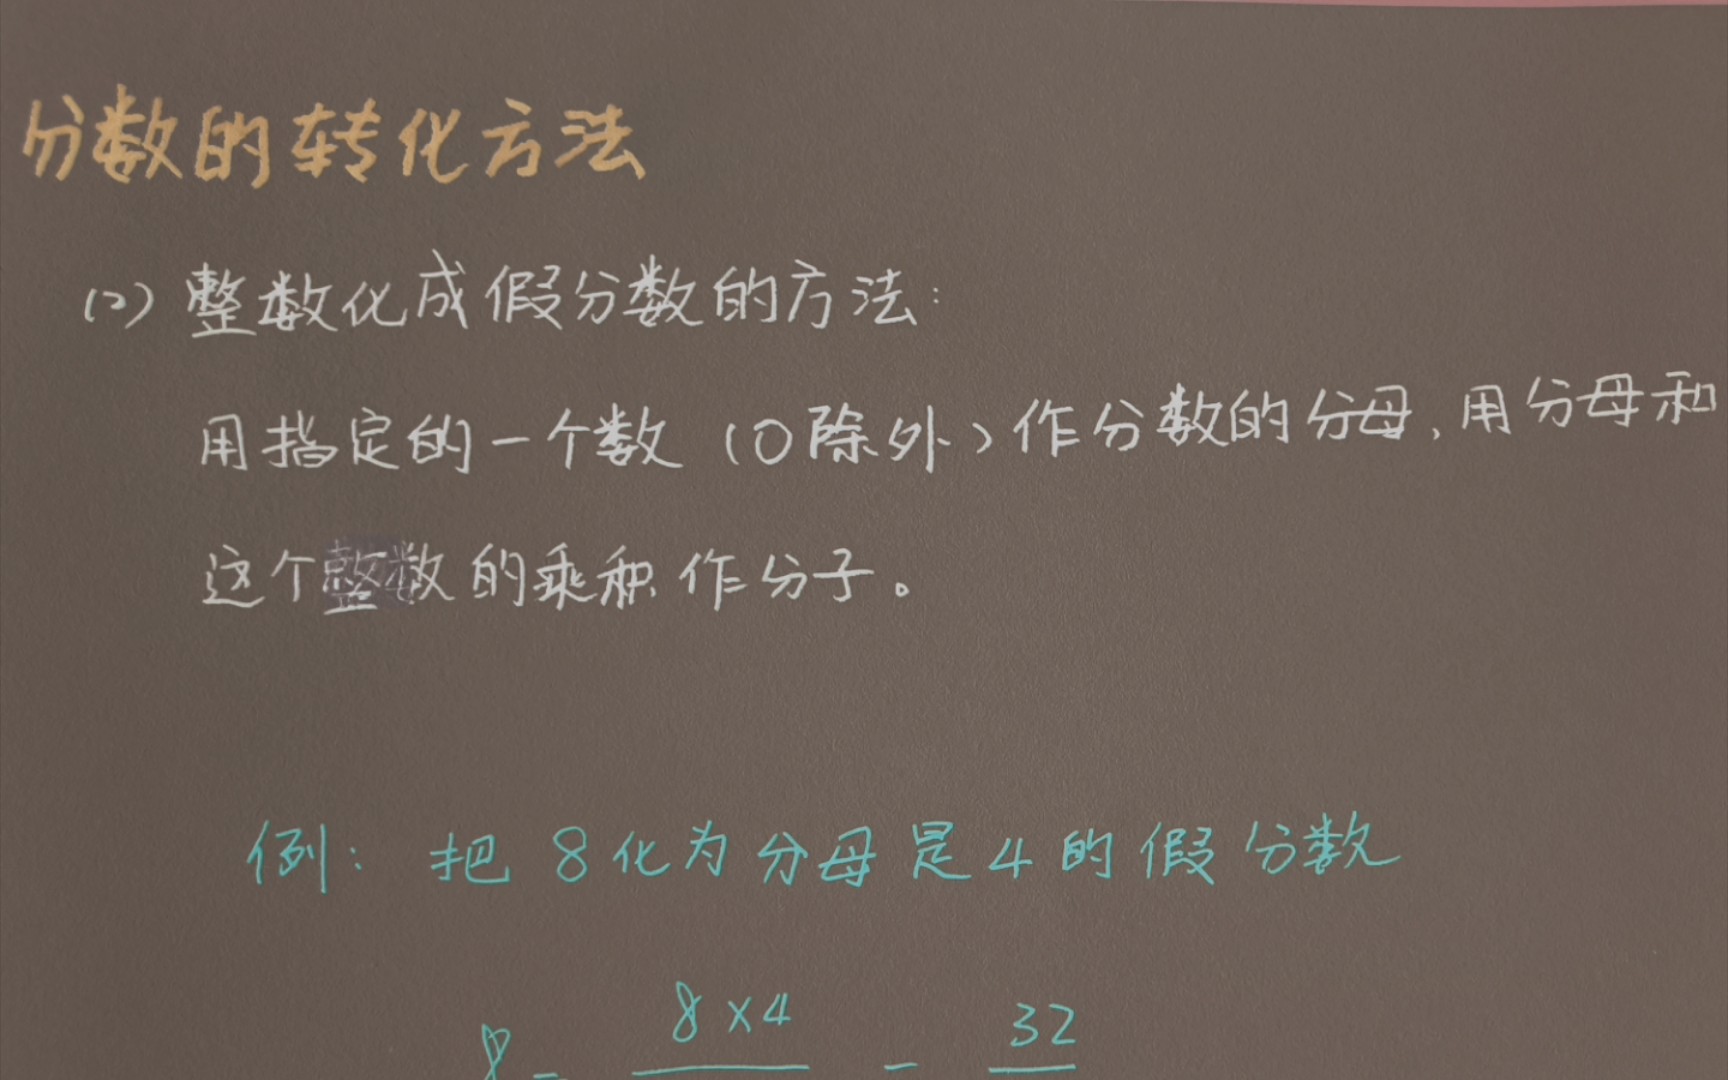 分数的转化方法
(2) 整数化成假分数的方法:
用指定的一个数(0除外)作分数的分母,用分母和
这个整数的乘积作分子。
例: 把 8 化为分母是 4 的假分数
8×4 32
8 = =